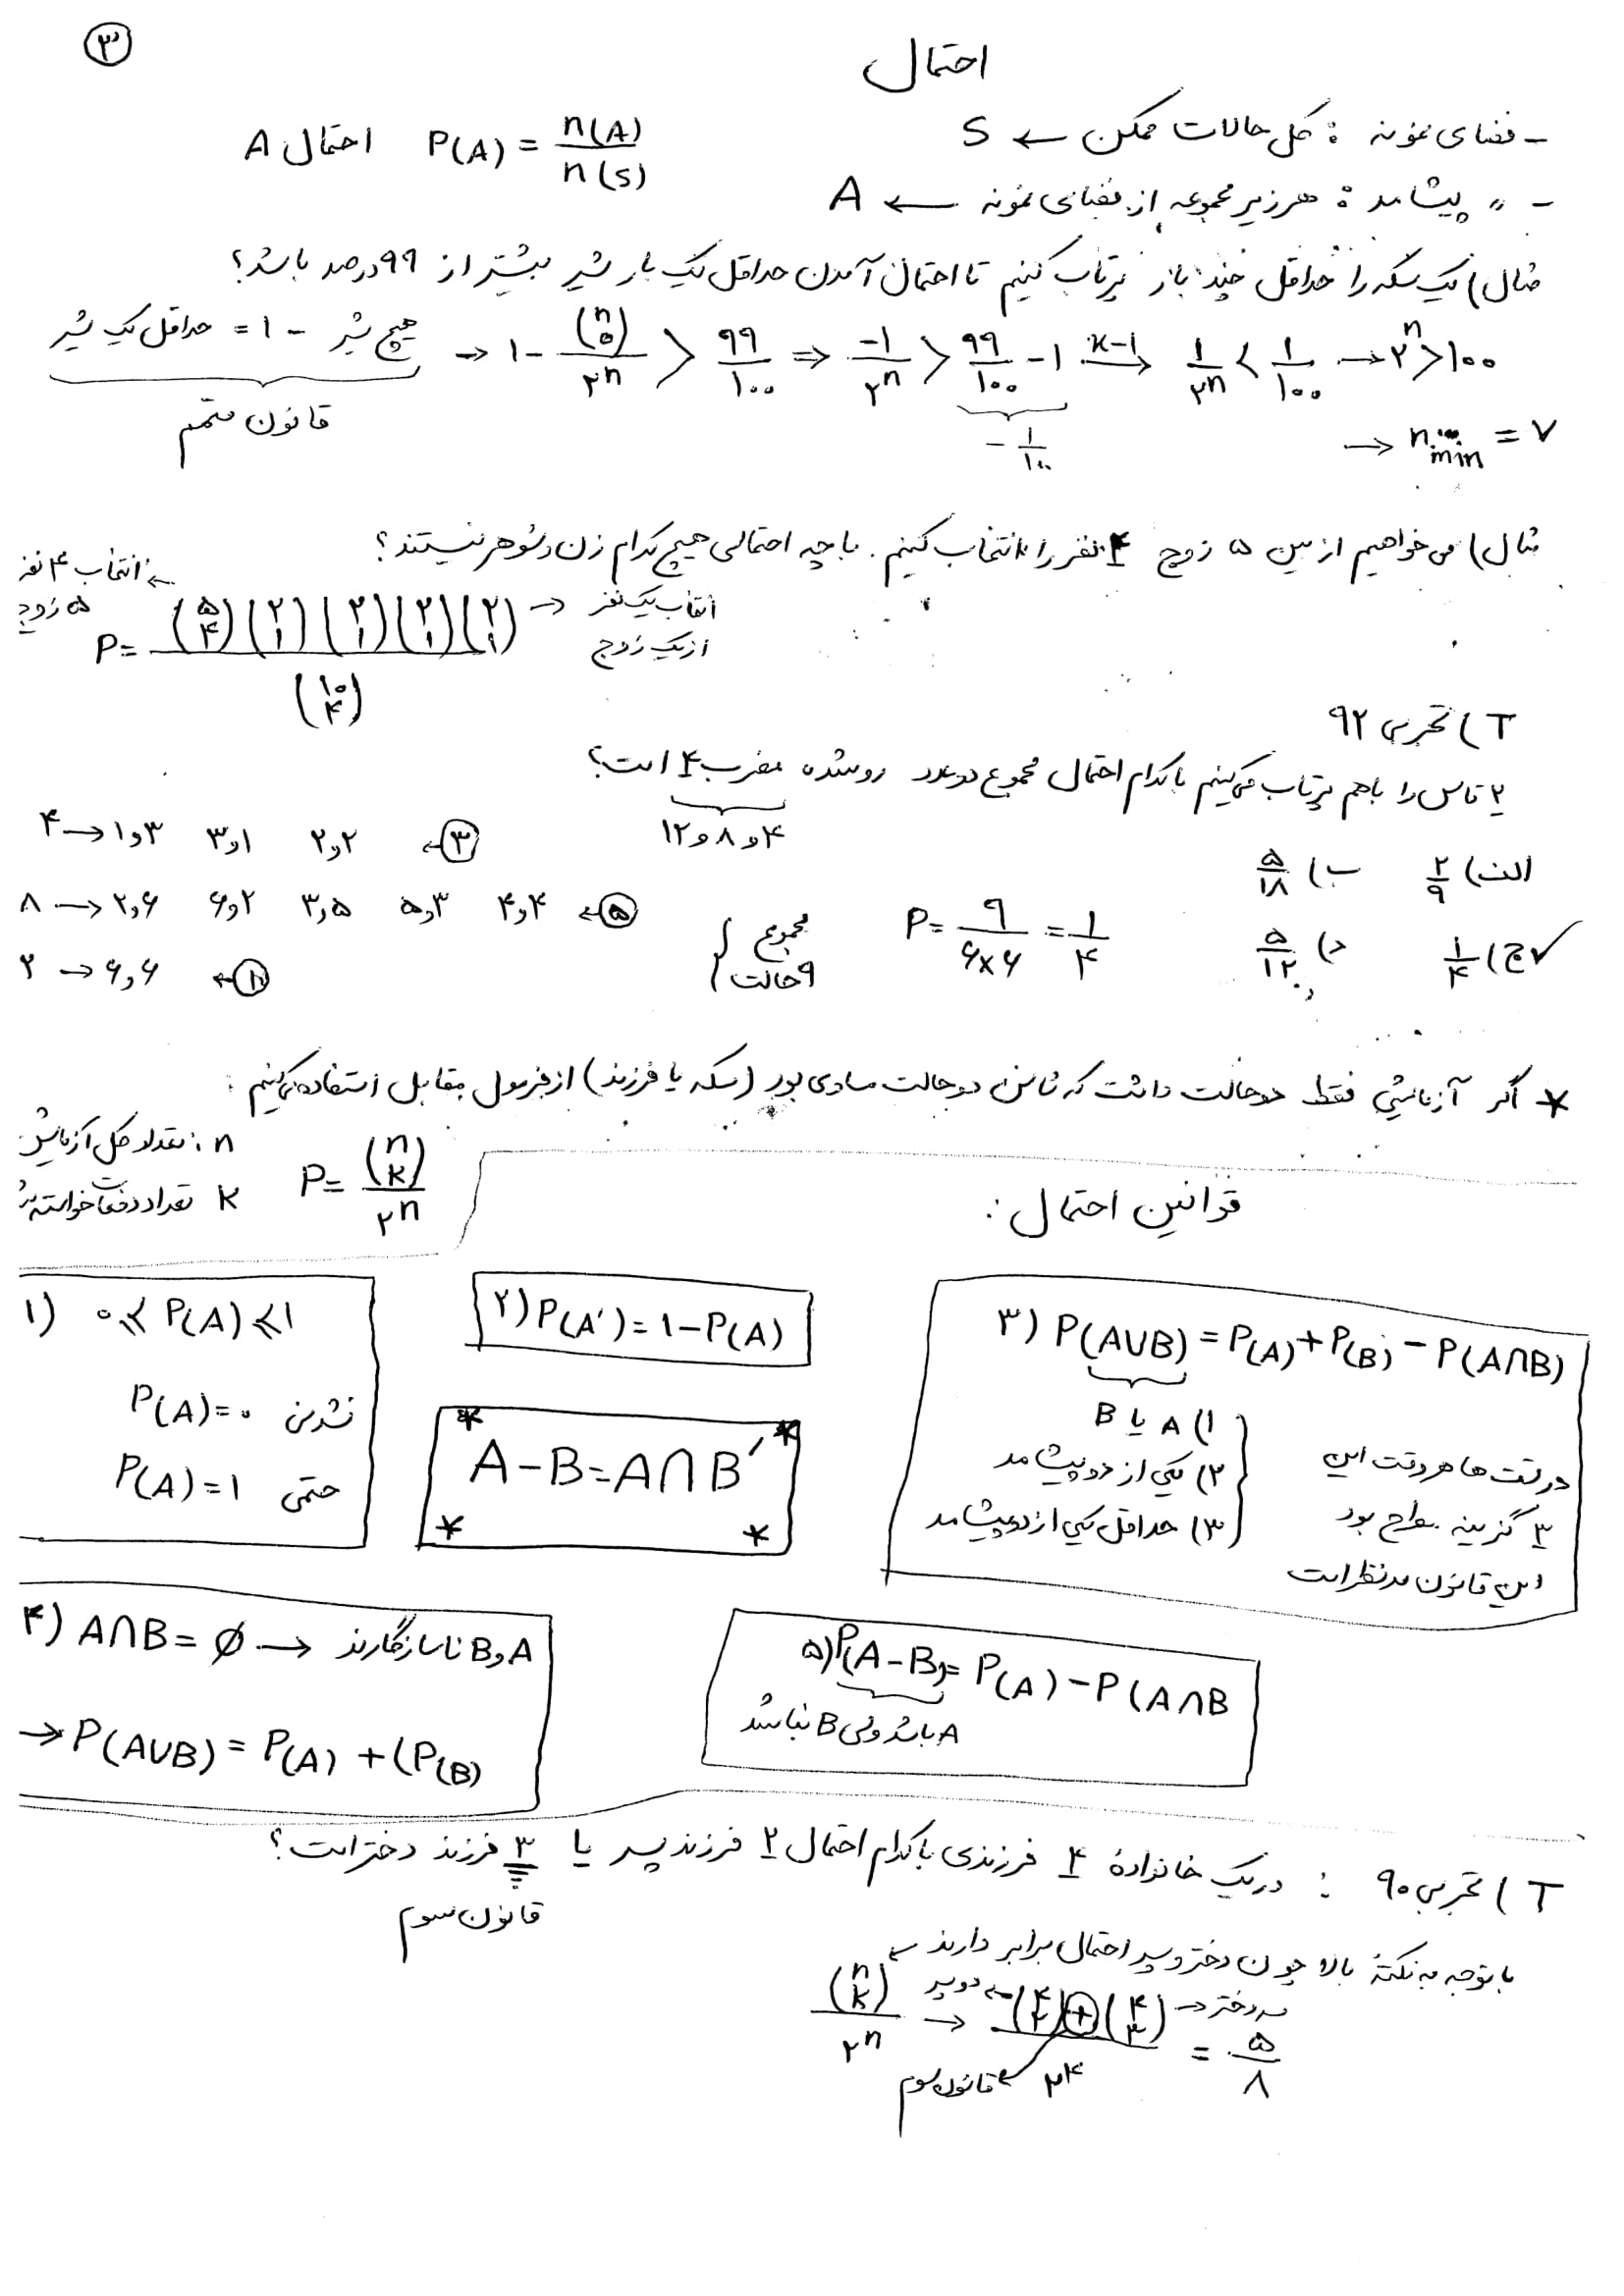 ۳
احتمال
- فضای نمونه : کل حالات ممکن ← S
احتمال A P(A) = n(A) / n(S)
- " پیشامد : هر زیر مجموعه از فضای نمونه ← A
مثال) یک سکه را حداقل چند بار پرتاب کنیم تا احتمال آمدن حداقل یک بار شیر بیشتر از ۹۹ درصد باشد؟
هیچ شیر - ۱ = حداقل یک شیر → ۱ - (n ۰) / ۲^n > ۹۹/۱۰۰ ⇒ -۱/۲^n > ۹۹/۱۰۰ - ۱ ×-۱→ ۱/۲^n < ۱/۱۰۰ → ۲^n > ۱۰۰
قانون متمم
- ۱/۱۰۰
→ n min = ۷
مثال) می خواهیم از بین ۵ زوج ۴ نفر را انتخاب کنیم. با چه احتمالی هیچ کدام زن و شوهر نیستند؟
انتخاب ۴ نفر
۵ زوج
P = (۵ ۴)(۲ ۱)(۲ ۱)(۲ ۱)(۲ ۱) / (۱۰ ۴)
→ انتخاب یک نفر
از یک زوج
T) تجربی ۹۲
۲ تاس را با هم پرتاب می کنیم با کدام احتمال مجموع دو عدد رو شده مضرب ۴ است؟
۴ و ۸ و ۱۲
الف) ۲/۹ ب) ۵/۱۸
ج) ۱/۴ ✓ د) ۵/۱۲
۴ → ۱و۳ ۳و۱ ۲و۲ ← ۳
۸ → ۲و۶ ۶و۲ ۳و۵ ۵و۳ ۴و۴ ← ۵
۲ → ۶و۶ ← ۱
مجموع
۹ حالت
P = ۹ / ۶×۶ = ۱/۴
* اگر آزمایشی فقط دو حالت داشت که شانس دو حالت مساوی بود (سکه یا فرزند) از فرمول مقابل استفاده می کنیم :
P = (n k) / ۲^n
n : تعداد کل آزمایش
k تعداد دفعات خواسته شده
قوانین احتمال :
۱) ۰ ≤ P(A) ≤ ۱
نشدنی P(A) = ۰
حتمی P(A) = ۱
۲) P(A′) = ۱ - P(A)
* A - B = A ∩ B′ *
* *
۳) P(A∪B) = P(A) + P(B) - P(A∩B)
۱) A یا B
۲) یکی از دو پیشامد
۳) حداقل یکی از دو پیشامد
در تست ها هر وقت این
۳ گزینه مطرح بود
این قانون مدنظر است
۴) A∩B = ∅ → A و B ناسازگارند
→ P(A∪B) = P(A) + (P(B)
۵) P(A - B) = P(A) - P(A∩B
A باشد ولی B نباشد
T) تجربی ۹۰ : در یک خانواده ۴ فرزندی با کدام احتمال ۲ فرزند پسر یا ۳ فرزند دختر است؟
قانون سوم
با توجه به نکته بالا چون دختر و پسر احتمال برابر دارند ←
(n k) / ۲^n → (۴ ۲) + (۴ ۳) / ۲^۴ = ۵/۸
دو پسر
سه دختر
قانون سوم